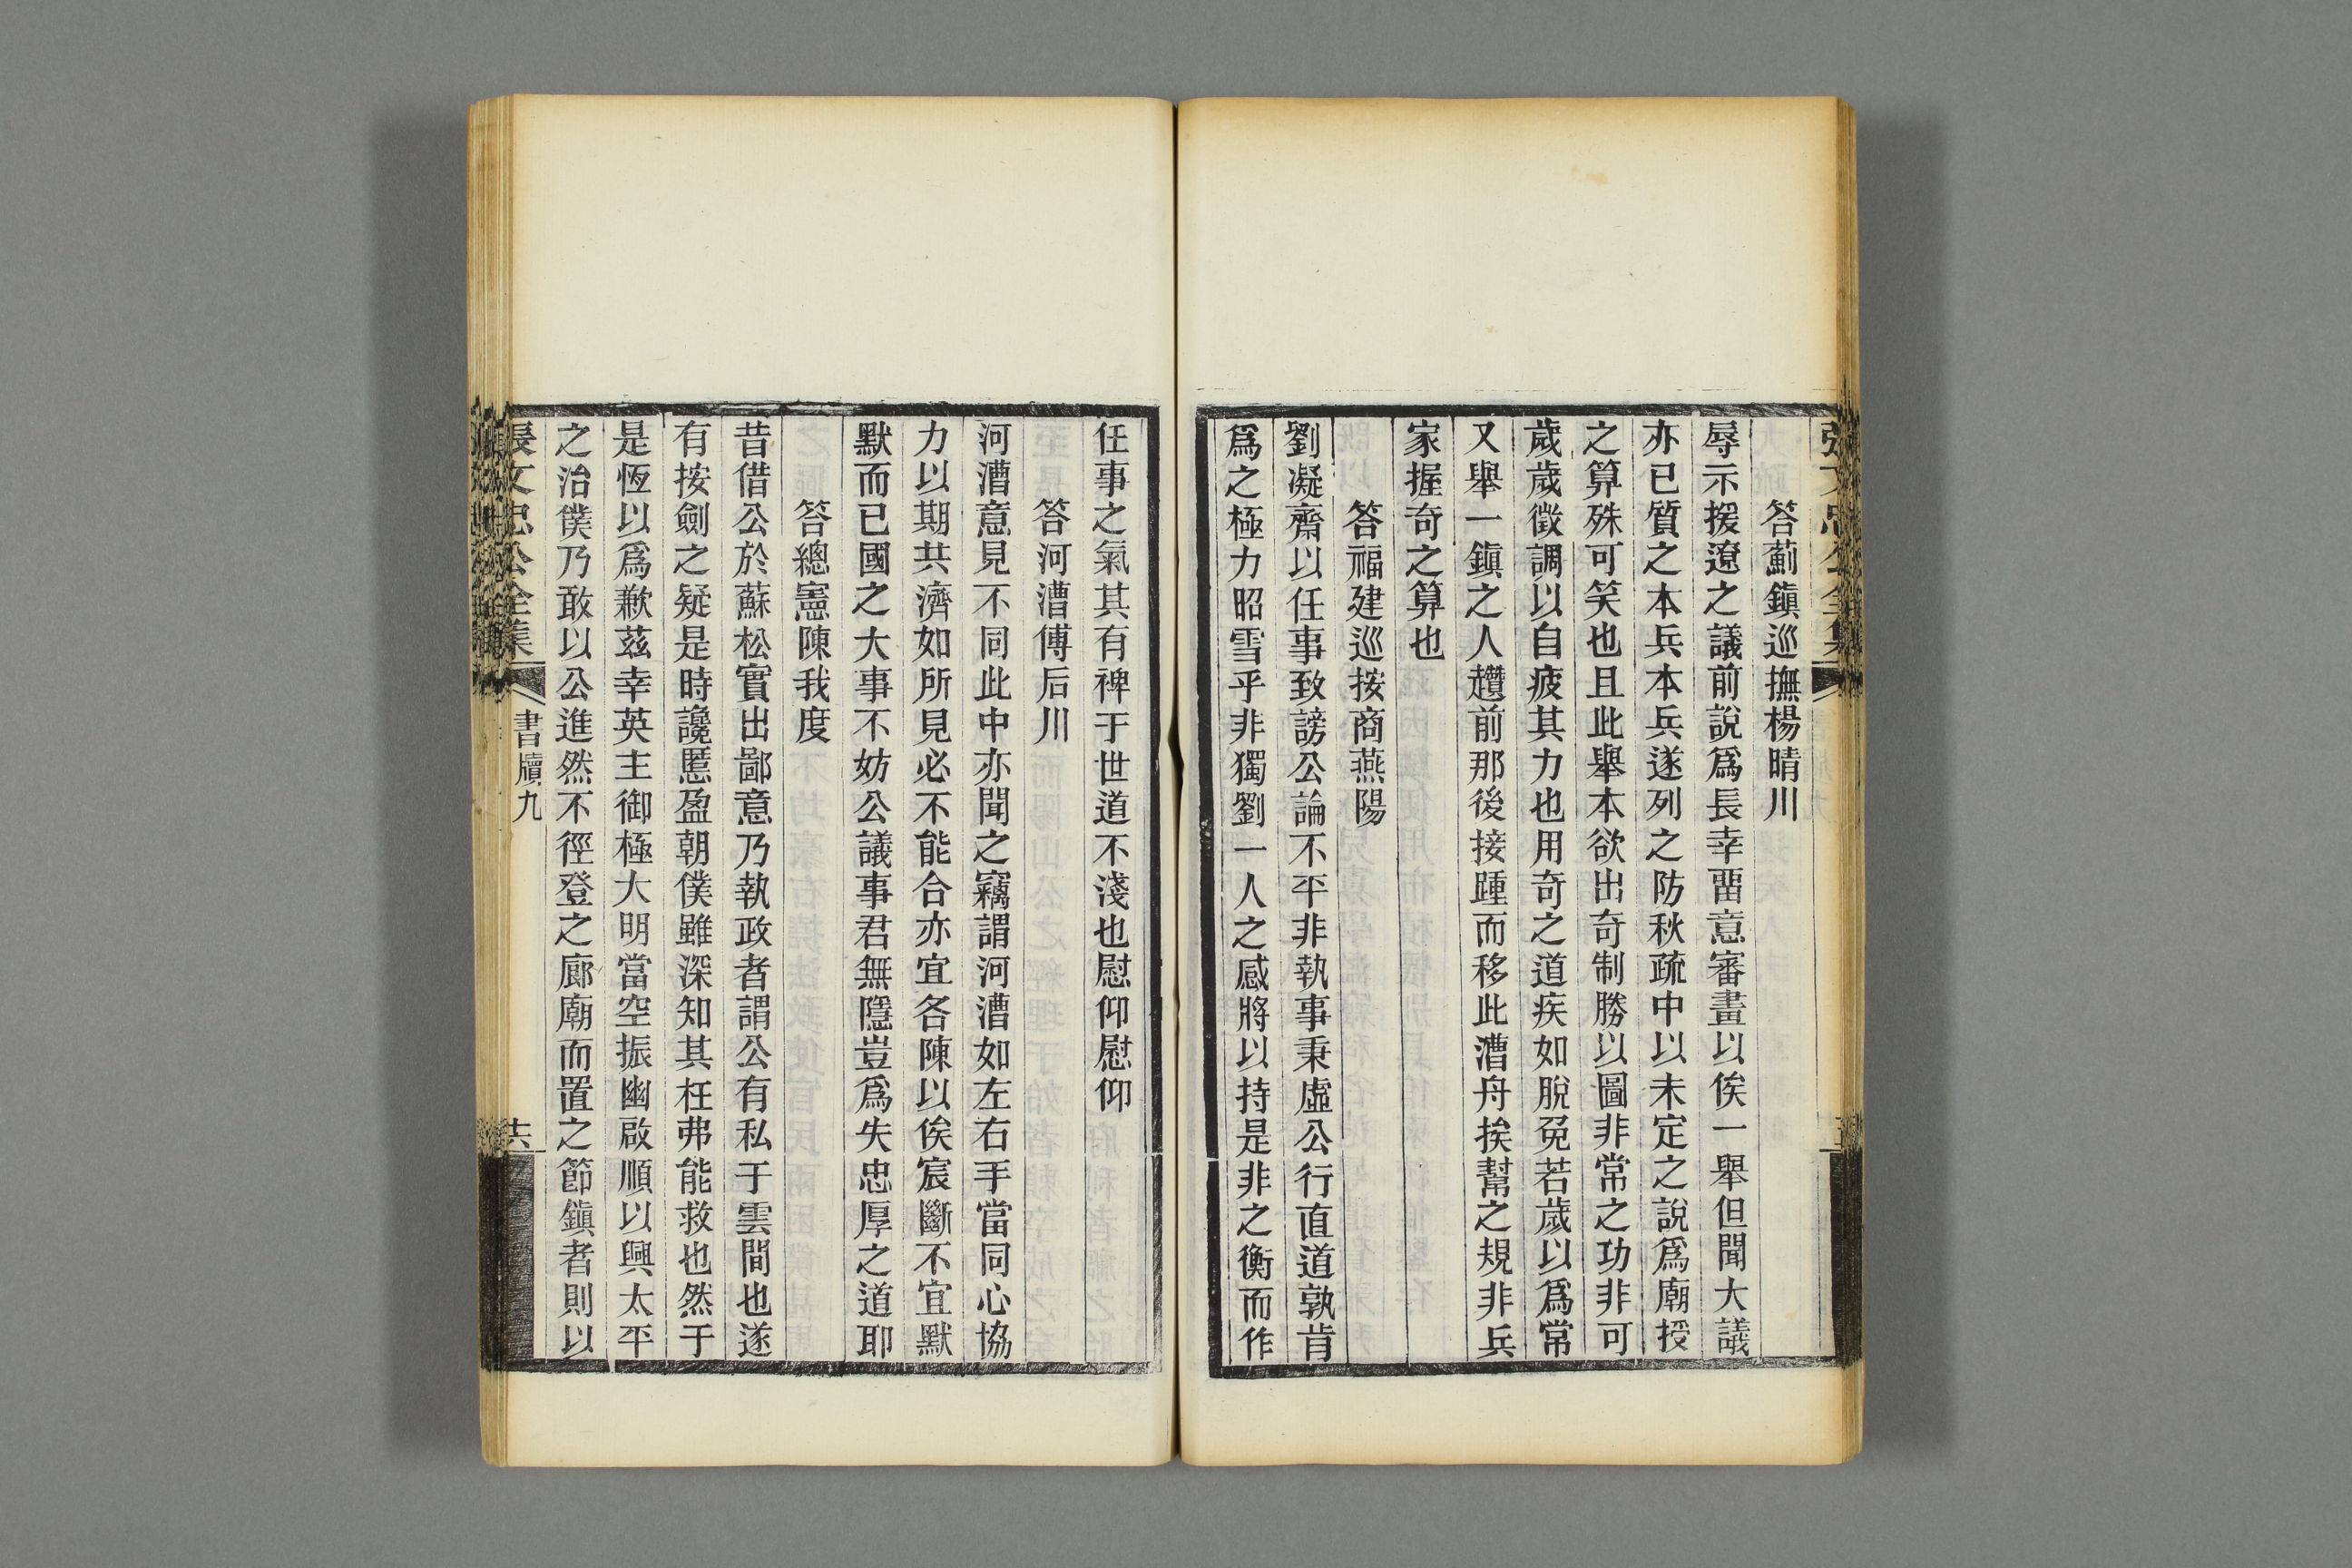 答薊鎮巡撫楊晴川
辱示援遼之議前說爲長幸畱意審畫以俟一舉但聞大議
亦已質之本兵本兵遂列之防秋疏中以未定之說爲廟授
之算殊可笑也且此舉本欲出奇制勝以圖非常之功非可
歲歲徵調以自疲其力也用奇之道疾如脫兔若歲以爲常
又舉一鎮之人趲前那後接踵而移此漕舟挨幫之規非兵
家握奇之算也
答福建巡按商燕陽
劉凝齋以任事致謗公論不平非執事秉虛公行直道孰肯
爲之極力昭雪乎非獨劉一人之感將以持是非之衡而作
任事之氣其有裨于世道不淺也慰仰慰仰
答河漕傅后川
河漕意見不同此中亦聞之竊謂河漕如左右手當同心協
力以期共濟如所見必不能合亦宜各陳以俟宸斷不宜默
默而已國之大事不妨公議事君無隱豈爲失忠厚之道耶
答總憲陳我度
昔借公於蘇松實出鄙意乃執政者謂公有私于雲間也遂
有按劍之疑是時讒慝盈朝僕雖深知其枉弗能救也然于
是恆以爲歉茲幸英主御極大明當空振幽啟順以興太平
之治僕乃敢以公進然不徑登之廊廟而置之節鎮者則以
張文忠公全集
書牘九
六